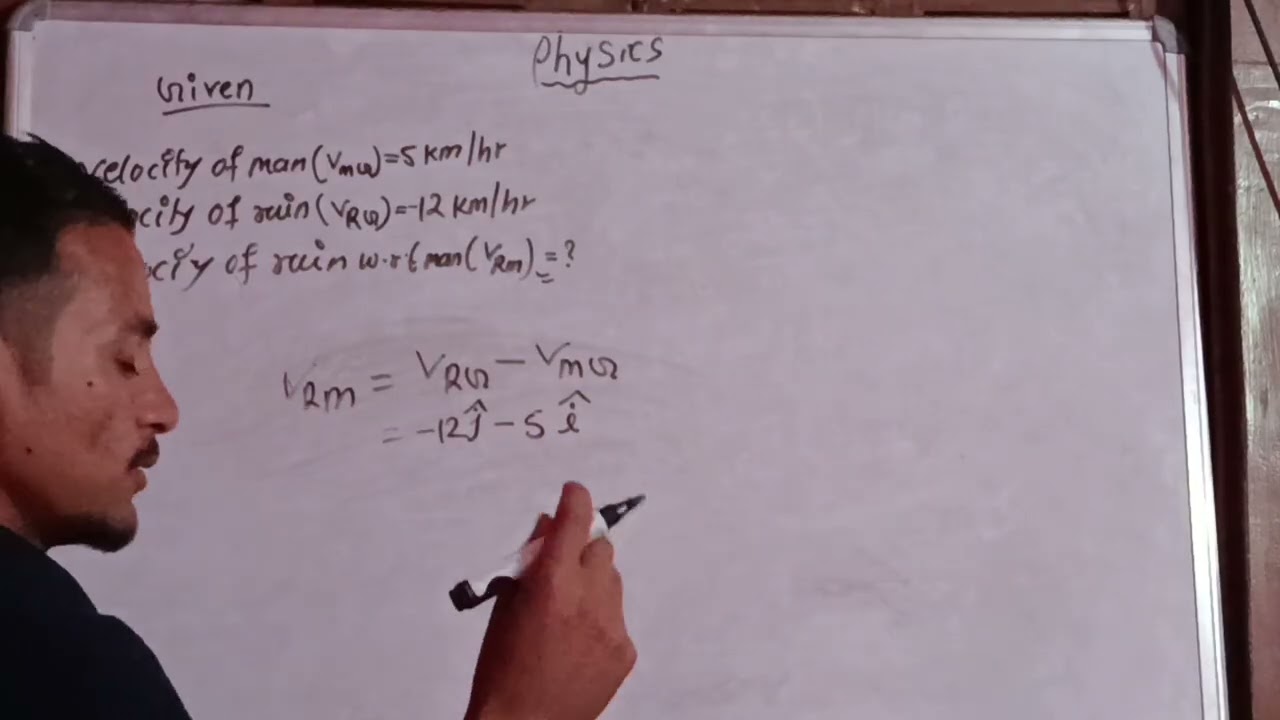 Physics
Given
velocity of man (VmG) = 5 km/hr
ocity of rain (VRG) = -12 km/hr
ocity of rain w.r.t man (VRm) = ?
VRm = VRG - VmG
= -12ĵ - 5 î